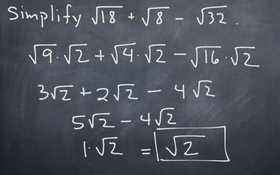 Simplify √18 + √8 - √32.
√9·√2 + √4·√2 - √16·√2
3√2 + 2√2 - 4√2
5√2 - 4√2
1·√2 = √2